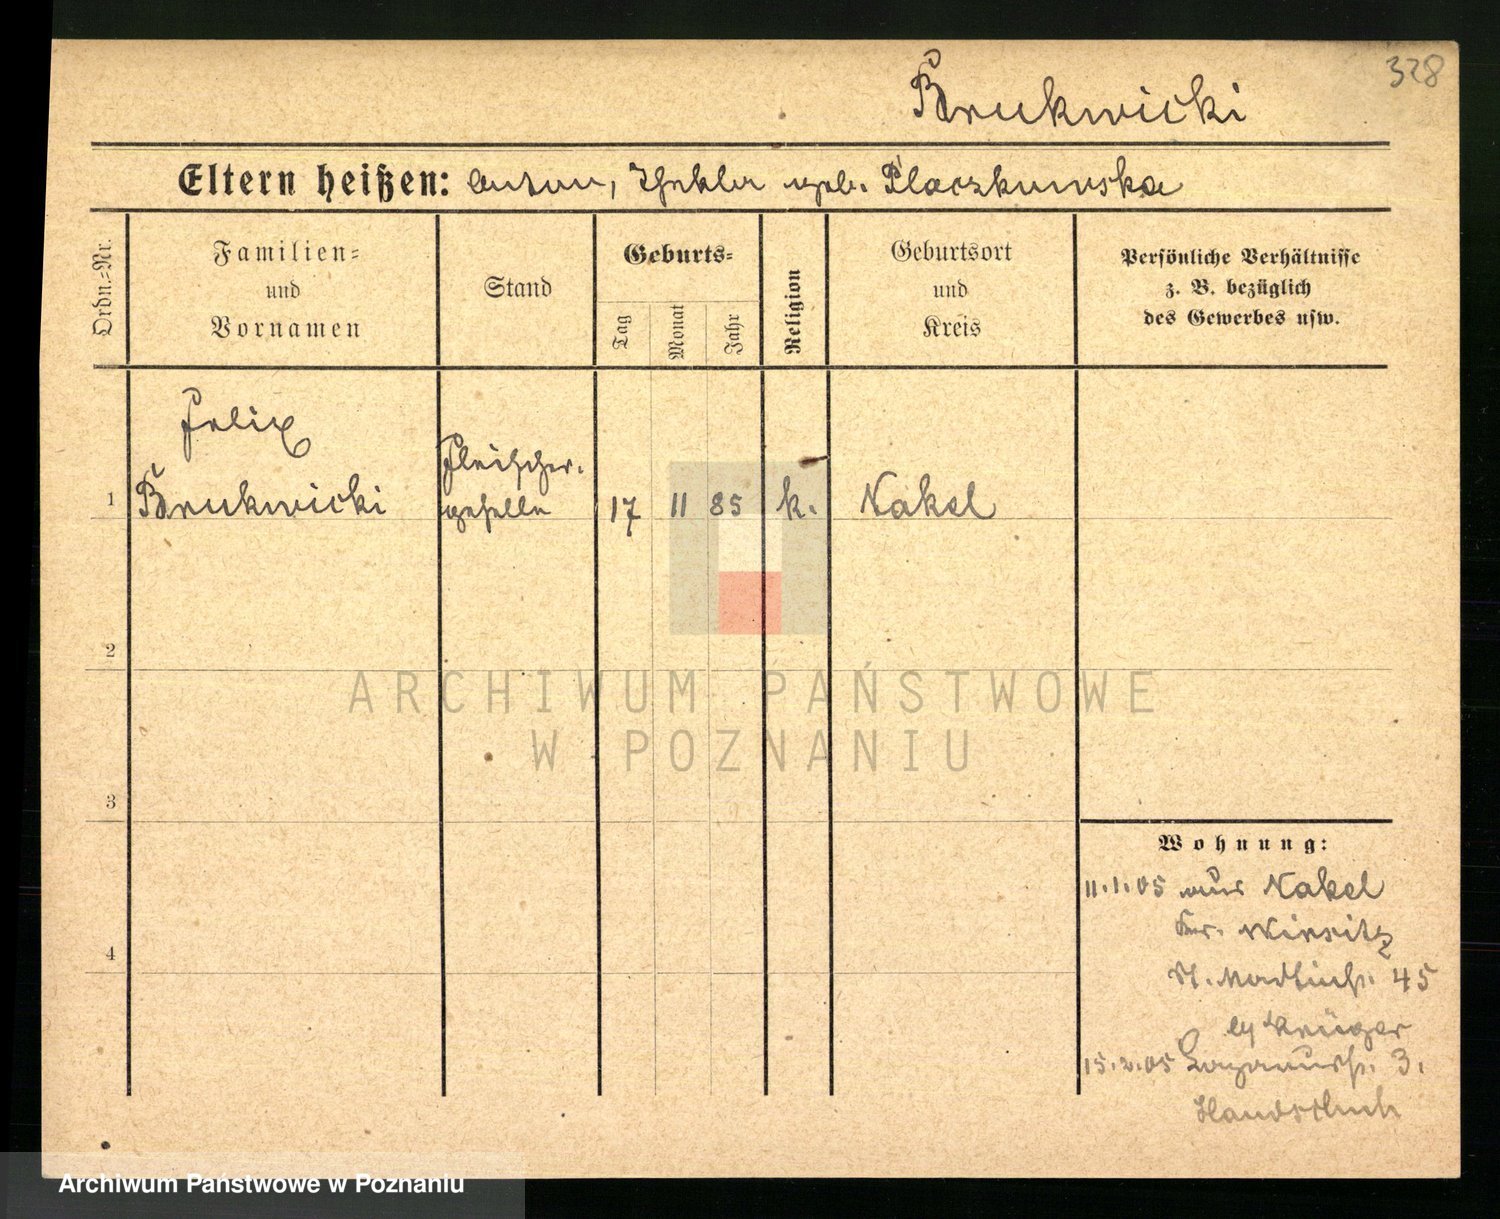 328
Brukwicki
Eltern heißen: Anton, Thekla geb. Placzkowska
Ordn.=Nr.
Familien=
und
Vornamen
Stand
Geburts=
Tag
Monat
Jahr
Religion
Geburtsort
und
Kreis
Persönliche Verhältnisse
z. B. bezüglich
des Gewerbes usw.
Felix
Fleischer-
1 Brukwicki geselle 17 11 85 k. Nakel
2
ARCHIWUM PAŃSTWOWE
W POZNANIU
3
Wohnung:
11.1.05 aus Nakel
Kr. Wirsitz
4
45
Krüger
15.2.05 3.
Archiwum Państwowe w Poznaniu